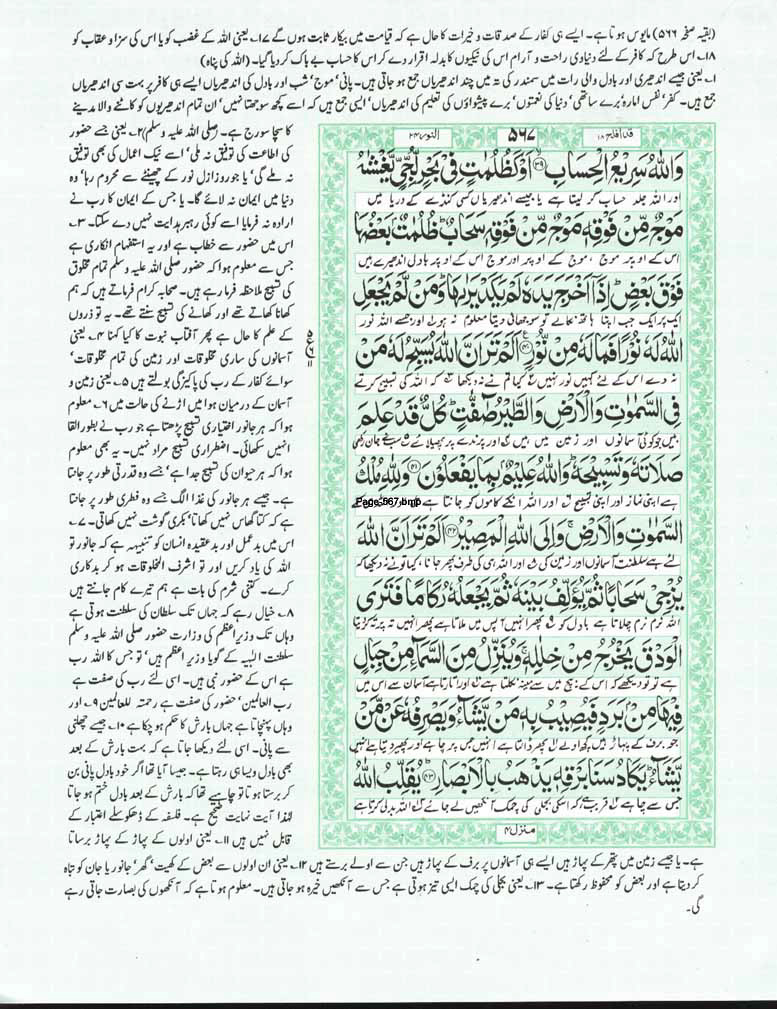 (بقیہ صفحہ ۵۶۶) مایوس ہوتا ہے۔ ایسے ہی کفار کے صدقات و خیرات کا حال ہے کہ قیامت میں بیکار ثابت ہوں گے ۱۷۔ یعنی اللہ کے غضب کو یا اس کی سزا و عقاب کو
۱۸۔ اس طرح کہ کافر کے لئے دنیاوی راحت و آرام اس کی نیکیوں کا بدلہ اقرار دے کر اس کا حساب بے باک کر دیا گیا۔ (اللہ کی پناہ)
۱۔ یعنی جیسے اندھیری اور بادل والی رات میں سمندر کی تہ میں چند اندھیریاں جمع ہو جاتی ہیں۔ پانی‘ موج‘ شب اور بادل کی اندھیریاں ایسے ہی کافر پر بہت سی اندھیریاں
جمع ہیں۔ کفر‘ نفس امارہ‘ برے ساتھی‘ دنیا کی نعمتوں‘ برے پیشواؤں کی تعلیم کی اندھیریاں‘ ایسی جمع ہیں کہ اسے کچھ سوجھتا نہیں‘ ان تمام اندھیریوں کو کاٹنے والا مدینے
کا سچا سورج ہے۔ (صلی اللہ علیہ وسلم) ۲۔ یعنی جسے حضور
کی اطاعت کی توفیق نہ ملی‘ اسے نیک اعمال کی بھی توفیق
نہ ملے گی‘ یا جو روز ازل نور کے چھینٹے سے محروم رہا‘ وہ
دنیا میں ایمان نہ لائے گا۔ یا جس کے ایمان کا رب نے
ارادہ نہ فرمایا اسے کوئی رہبر ہدایت نہیں دے سکتا۔ ۳۔
اس میں حضور سے خطاب ہے اور یہ استفہام انکاری ہے
جس سے معلوم ہوا کہ حضور صلی اللہ علیہ وسلم تمام مخلوق
کی تسبیح ملاحظہ فرما رہے ہیں۔ صحابہ کرام فرماتے ہیں کہ ہم
کھانا کھاتے تھے اور کھانے کی تسبیح سنتے تھے۔ یہ تو ذروں
کے علم کا حال ہے پھر آفتاب نبوت کا کیا کہنا ۴۔ یعنی
آسمانوں کی ساری مخلوقات اور زمین کی تمام مخلوقات‘
سوائے کفار کے رب کی پاکیزگی بولتے ہیں ۵۔ یعنی زمین و
آسمان کے درمیان ہوا میں اڑنے کی حالت میں ۶۔ معلوم
ہوا کہ ہر جانور اختیاری تسبیح پڑھتا ہے جو رب نے بطور القا
انہیں سکھائی۔ اضطراری تسبیح مراد نہیں۔ یہ بھی معلوم
ہوا کہ ہر حیوان کی تسبیح جدا ہے‘ جسے وہ قدرتی طور پر جانتا
ہے۔ جیسے ہر جانور کی غذا الگ جسے وہ فطری طور پر جانتا
ہے کہ کتا گھاس نہیں کھاتا‘ بکری گوشت نہیں کھاتی۔ ۷۔
اس میں بد عمل اور بد عقیدہ انسان کو تنبیہہ ہے کہ جانور تو
اللہ کی یاد کریں اور تو اشرف المخلوقات ہو کر بدکاری
کرے۔ کتنی شرم کی بات ہے ہم تیرے کام جانتے ہیں
۸۔ خیال رہے کہ جہاں تک سلطان کی سلطنت ہوتی ہے
وہاں تک وزیر اعظم کی وزارت حضور صلی اللہ علیہ وسلم
سلطنت الہیہ کے گویا وزیر اعظم ہیں‘ تو جس کا اللہ رب
ہے اس کے حضور نبی ہیں۔ اسی لئے رب کی صفت ہے
رب العالمین‘ حضور کی صفت ہے رحمتہ للعالمین ۹۔ اور
وہاں پہنچاتا ہے جہاں بارش کا حکم ہو چکا ہے ۱۰۔ جیسے چھلنی
سے پانی۔ اسی لئے دیکھا جاتا ہے کہ بہت بارش کے بعد
بھی بادل ویسا ہی رہتا ہے۔ جیسا آیا تھا اگر خود بادل پانی بن
کر برستا ہوتا تو چاہیے تھا کہ بارش کے بعد بادل ختم ہو جاتا
لہٰذا آیت نہایت صحیح ہے۔ فلسفہ کے ڈھکوسلے اعتبار کے
قابل نہیں ہیں ۱۱۔ یعنی اولوں کے پہاڑ کے پہاڑ برساتا
قد افلح ۱۸
۵۶۷
النور ۲۴
وَاللّٰهُ سَرِيْعُ الْحِسَابِ ۳۹ اَوْ كَظُلُمٰتٍ فِيْ بَحْرٍ لُّجِّيٍّ يَّغْشٰىهُ
اور اللہ جلد حساب کر لیتا ہے یا جیسے اندھیریاں کسی کنڈے کے دریا میں
مَوْجٌ مِّنْ فَوْقِهٖ مَوْجٌ مِّنْ فَوْقِهٖ سَحَابٌ ظُلُمٰتٌ بَعْضُهَا
اس کے اوپر موج ، موج کے اوپر اور موج اس کے اوپر بادل اندھیرے ہیں
فَوْقَ بَعْضٍ اِذَآ اَخْرَجَ يَدَهٗ لَمْ يَكَدْ يَرٰىهَا وَمَنْ لَّمْ يَجْعَلِ
ایک پر ایک جب اپنا ہاتھ نکالے تو سوجھائی دیتا معلوم نہ ہو اور جسے اللہ نور
اللّٰهُ لَهٗ نُوْرًا فَمَا لَهٗ مِنْ نُّوْرٍ ۴۰ اَلَمْ تَرَ اَنَّ اللّٰهَ يُسَبِّحُ لَهٗ مَنْ
نہ دے اس کے لئے کہیں نور نہیں کیا تم نے نہ دیکھا کہ اللہ کی تسبیح کرتے
فِي السَّمٰوٰتِ وَالْاَرْضِ وَالطَّيْرُ صٰٓفّٰتٍ كُلٌّ قَدْ عَلِمَ
ہیں جو کوئی آسمانوں اور زمین میں ہیں اور پرندے پر پھیلائے سب نے جان رکھی
صَلَاتَهٗ وَتَسْبِيْحَهٗ وَاللّٰهُ عَلِيْمٌۢ بِمَا يَفْعَلُوْنَ ۴۱ وَلِلّٰهِ مُلْكُ
ہے اپنی نماز اور اپنی تسبیح اور اللہ انکے کاموں کو جانتا ہے
Page-567.bmp
السَّمٰوٰتِ وَالْاَرْضِ وَاِلَى اللّٰهِ الْمَصِيْرُ ۴۲ اَلَمْ تَرَ اَنَّ اللّٰهَ
لئے ہے سلطنت آسمانوں اور زمین کی اور اللہ ہی کی طرف پھر جانا ، کیا تونے نہ دیکھا کہ
يُزْجِيْ سَحَابًا ثُمَّ يُؤَلِّفُ بَيْنَهٗ ثُمَّ يَجْعَلُهٗ رُكَامًا فَتَرَى
اللہ نرم نرم چلاتا ہے بادل کو پھر انہیں آپس میں ملاتا ہے پھر انہیں تہ پر تہ کر دیتا
الْوَدْقَ يَخْرُجُ مِنْ خِلٰلِهٖ وَيُنَزِّلُ مِنَ السَّمَآءِ مِنْ جِبَالٍ
ہے تو تو دیکھے کہ اس کے بیچ میں سے مینہ نکلتا ہے اور اتارتا ہے آسمان سے اس میں
فِيْهَا مِنْۢ بَرَدٍ فَيُصِيْبُ بِهٖ مَنْ يَّشَآءُ وَيَصْرِفُهٗ عَنْ مَّنْ
جو برف کے پہاڑ ہیں کچھ اولے پھر ڈالتا ہے انہیں جس پر چاہے اور پھیر دیتا ہے انہیں
يَّشَآءُ يَكَادُ سَنَا بَرْقِهٖ يَذْهَبُ بِالْاَبْصَارِ ۴۳ يُقَلِّبُ اللّٰهُ
جس سے چاہے قریب ہے کہ اسکی بجلی کی چمک آنکھیں لے جائے اللہ بدلی کرتا ہے
منزل ۴
ہے۔ یا جیسے زمین میں پتھر کے پہاڑ ہیں ایسے ہی آسمانوں پر برف کے پہاڑ ہیں جن سے اولے برستے ہیں ۱۲۔ یعنی ان اولوں سے بعض کے کھیت‘ گھر‘ جانور یا جان کو تباہ
کر دیتا ہے اور بعض کو محفوظ رکھتا ہے۔ ۱۳۔ یعنی بجلی کی چمک ایسی تیز ہوتی ہے جس سے آنکھیں خیرہ ہو جاتی ہیں۔ معلوم ہوتا ہے کہ آنکھوں کی بصارت جاتی رہے
گی۔